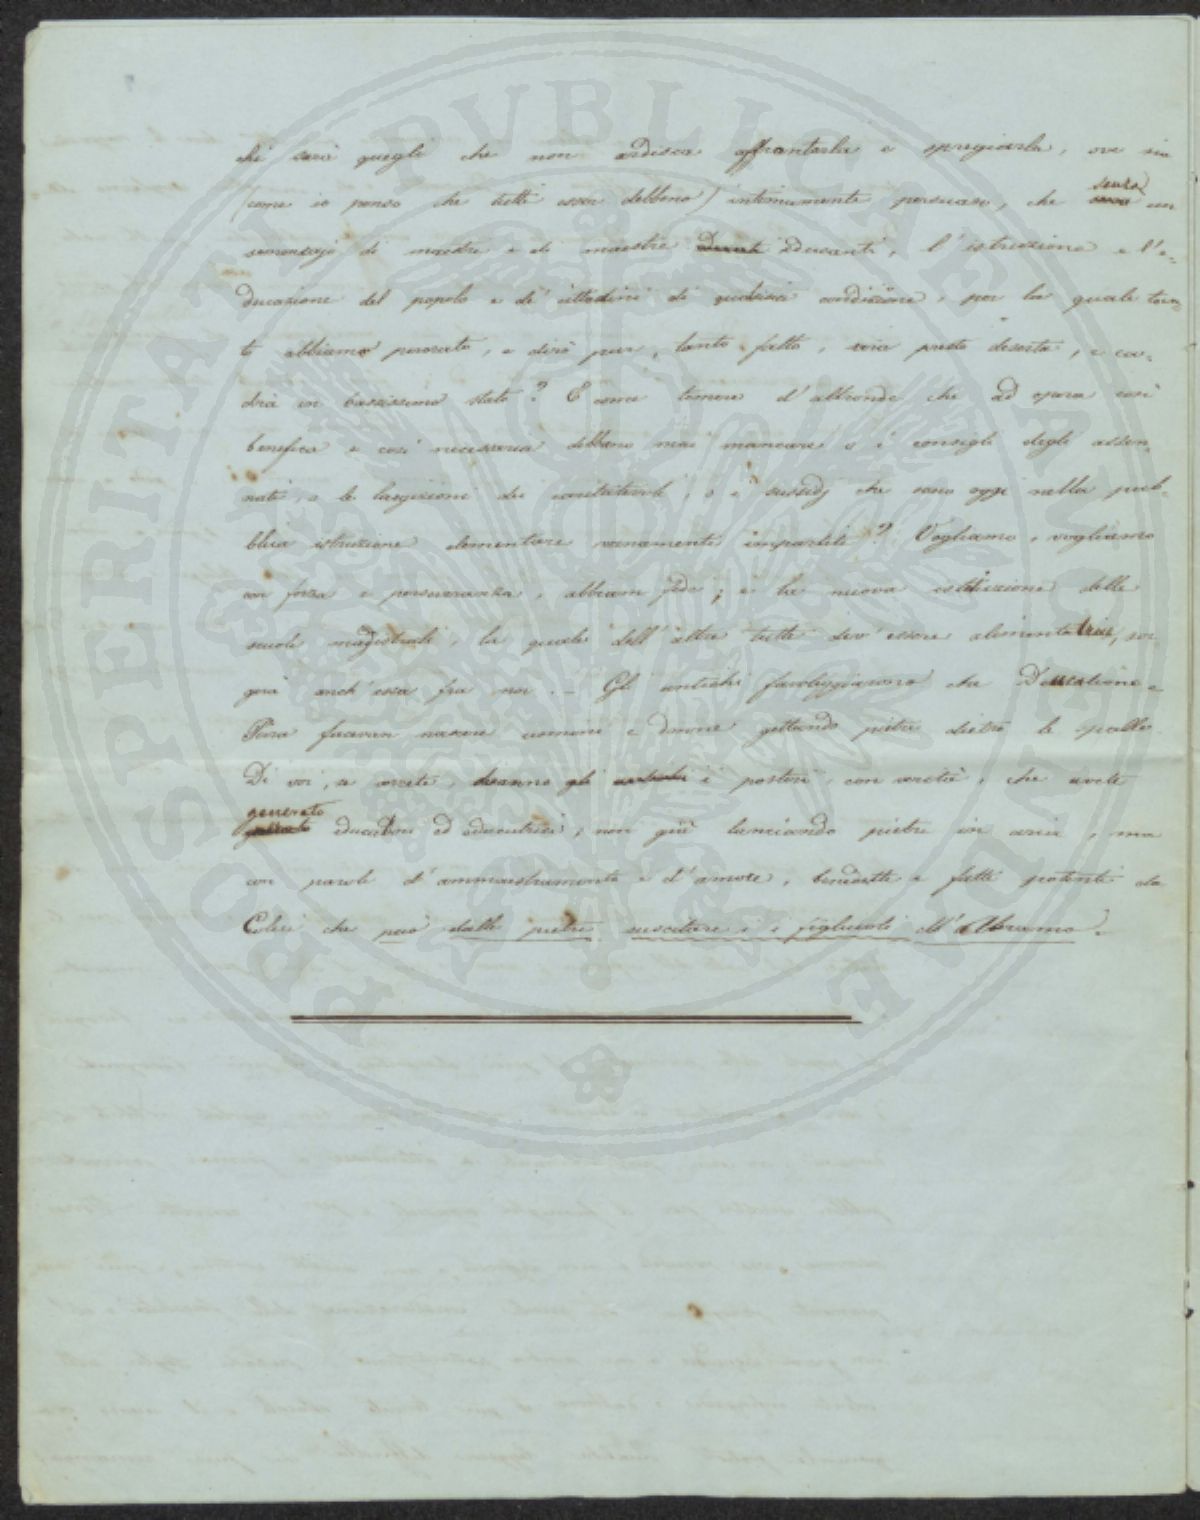 chi sarà quegli che non ardisca affrontarla e spregiarla, ove sia
(come io penso che tutti esser debbano) intimamente persuaso, che senza un
semenzajo di maestri e di maestre educanti, l'istruzione e l'e-
ducazione del popolo e de' cittadini di qualsisia condizione, per la quale tan-
to abbiamo perorato, e dirò pur, tanto fatto, sia presto deserta, e ca-
drà in bassissimo stato? E come temere d'altronde che ad opera così
benefica e così necessaria debbano mai mancare o i consigli degli assen-
nati, o le largizioni dei caritatevoli, o i sussidj che sono oggi nella pub-
blica istruzione elementare vanamente impartiti? Vogliamo, vogliamo
con forza e perseveranza, abbiam fede; e la nuova istituzione delle
scuole magistrali, la quale dell'altre tutte dev'essere alimentatrice, sor-
gerà anch'essa fra noi. – Gli antichi favoleggiarono che Deucalione e
Pirra facevan nascere uomini e donne gettando pietre dietro le spalle.
Di voi, se vorrete, diranno i posteri, con verità, che avete
generato educatori ed educatrici, non già lanciando pietre in aria, ma
con parole d'ammaestramento e d'amore, benedette e fatte potenti da
Colui che può dalle pietre suscitare i figliuoli d'Abramo.
PROSPERITATI PUBLICAE